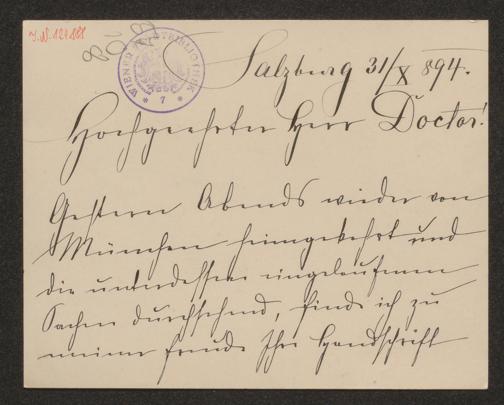 J.N. 124188
WIENER STADTBIBLIOTHEK
* 7 *
Salzburg 31/X 894.
Hochgeehrter Herr Doctor!
Gestern Abends wieder von
München heimgekehrt und
die unterdessen eingelaufenen
Sachen durchsehend, finde ich zu
meiner Freude Ihre Handschrift